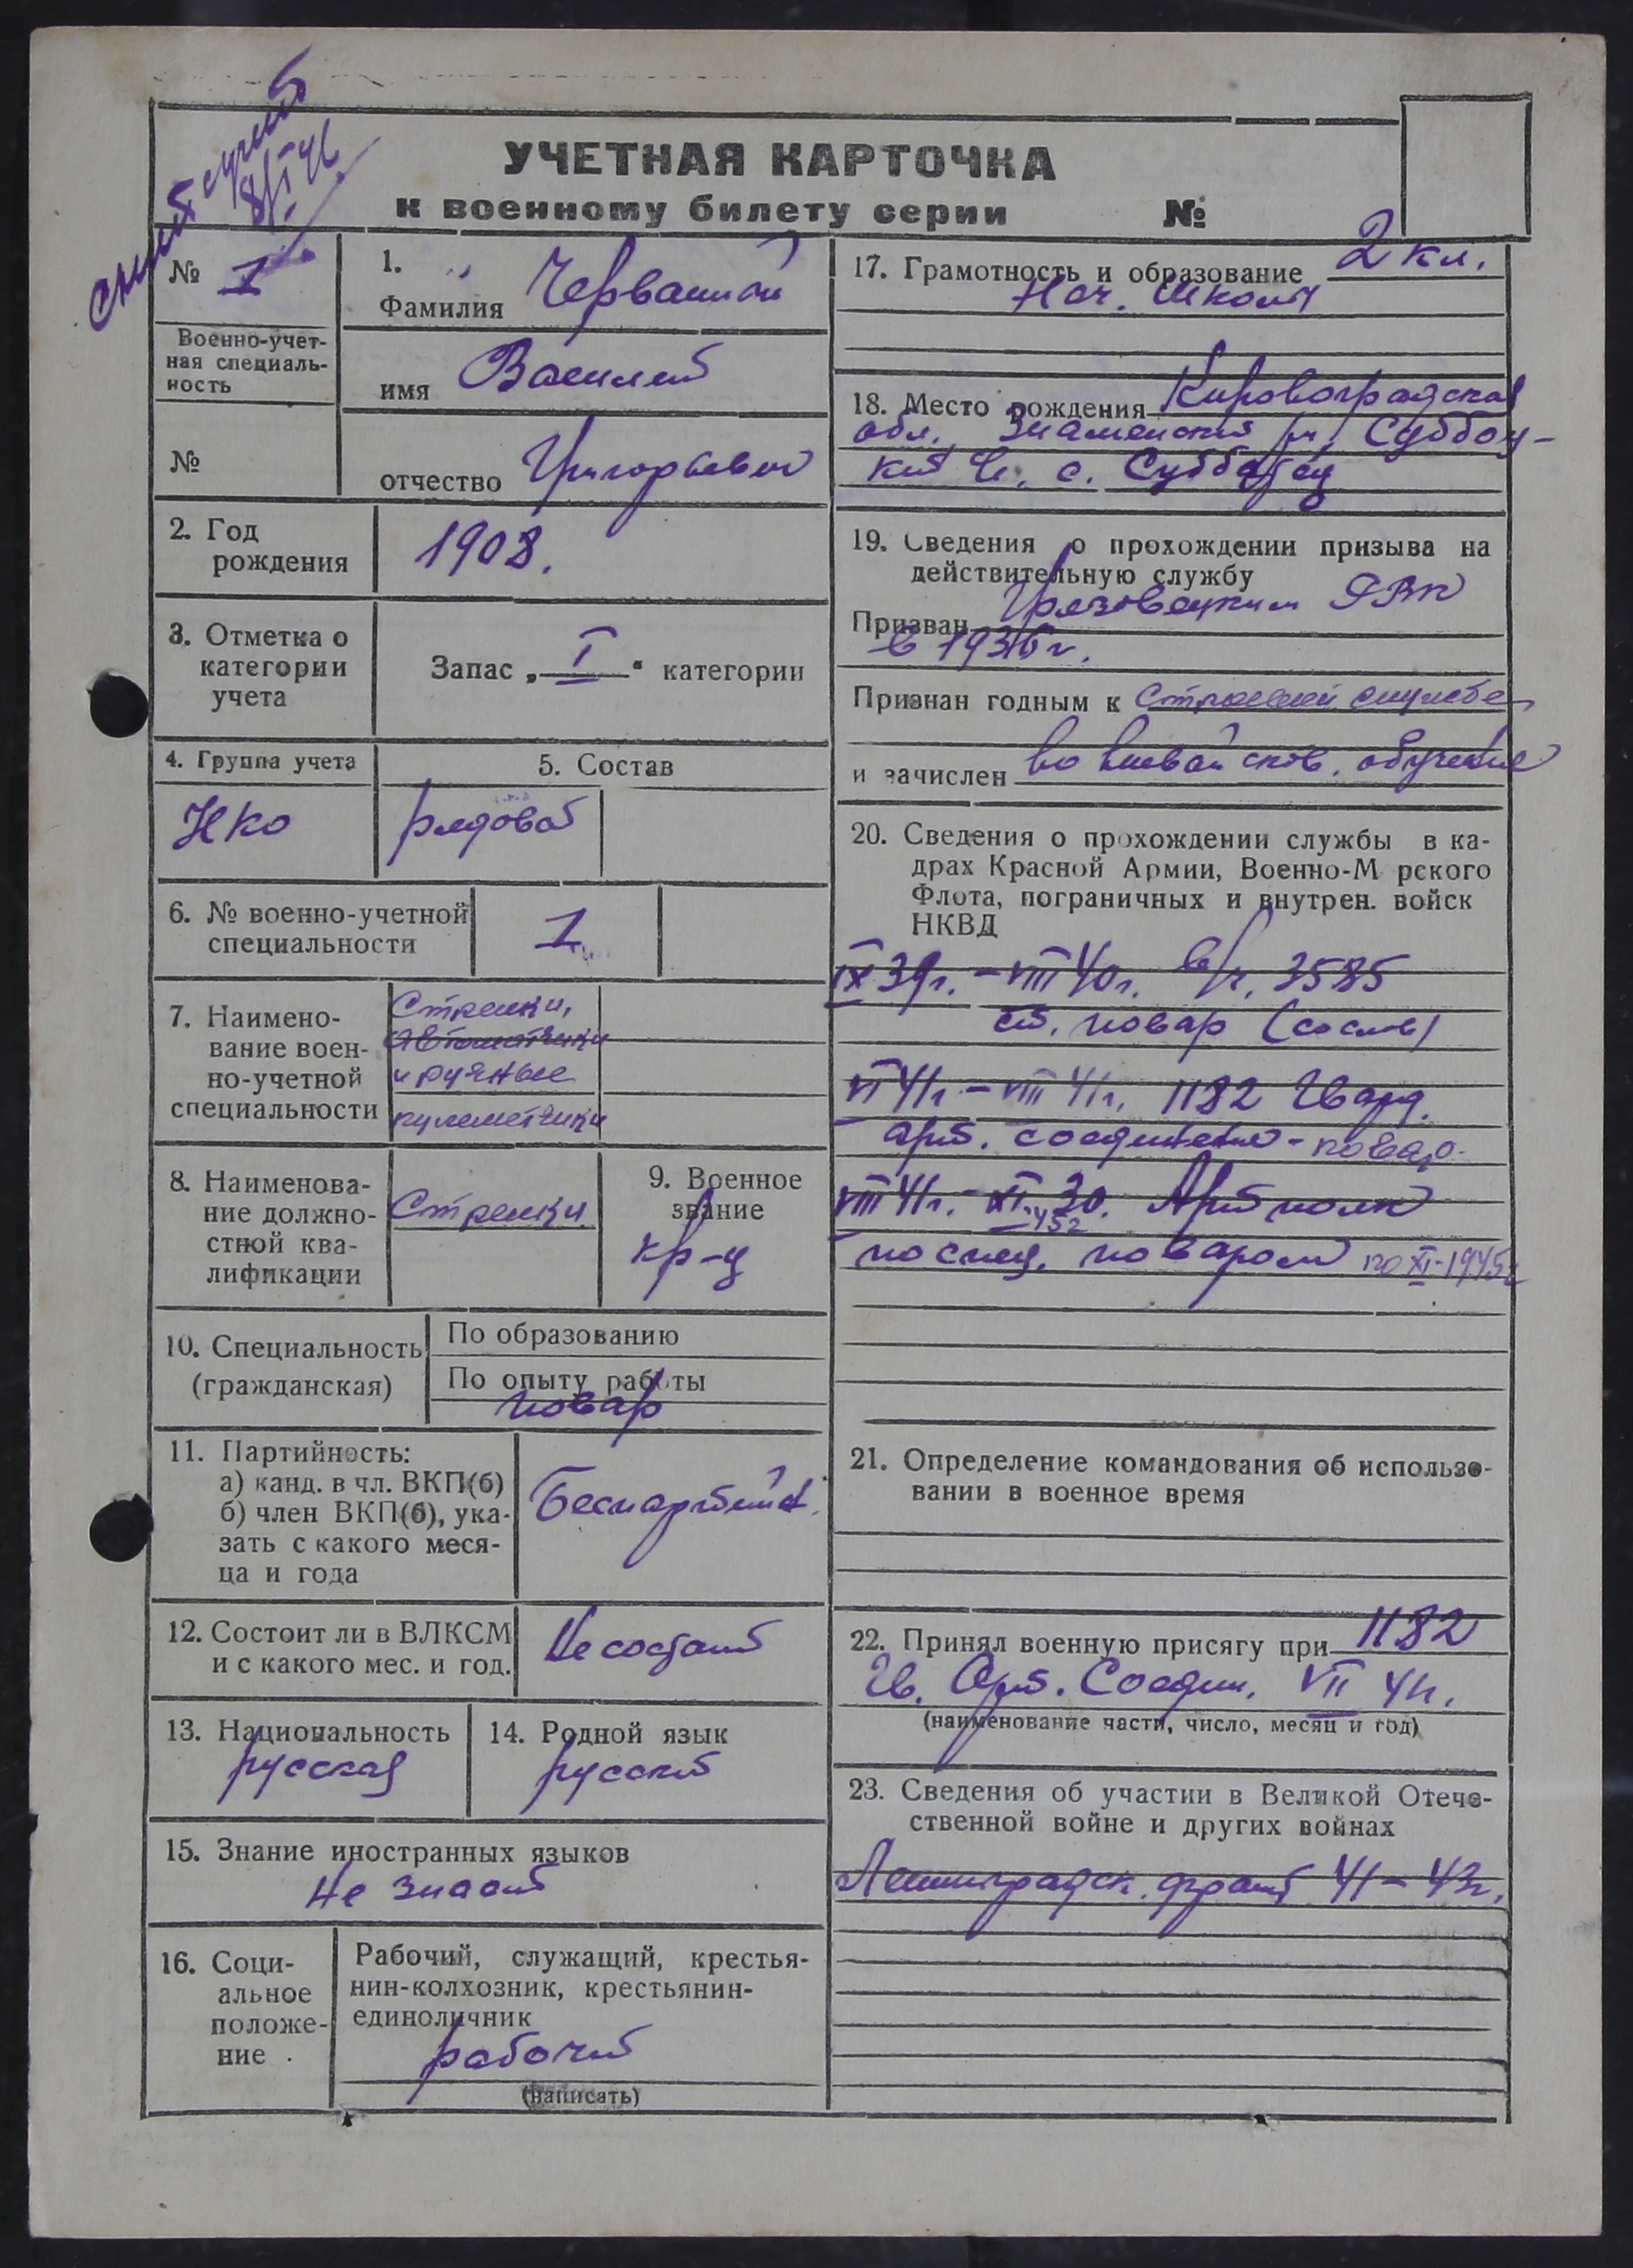 снят с учета
8/I-46
УЧЕТНАЯ КАРТОЧКА
к военному билету серии №
№ 1
Военно-учет-
ная специаль-
ность
№
1.
Фамилия Червашной
имя Василий
отчество Григорьевич
2. Год
рождения
1908.
3. Отметка о
категории
учета
Запас „ I “ категории
4. Группа учета
НКО
5. Состав
рядовой
6. № военно-учетной
специальности
1
7. Наимено-
вание воен-
но-учетной
специальности
Стрелки,
автоматчики
и ручные
пулеметчики
8. Наименова-
ние должно-
стной ква-
лификации
Стрелки
9. Военное
звание
кр-ц
10. Специальность
(гражданская)
По образованию
По опыту работы
повар
11. Партийность:
а) канд. в чл. ВКП(б)
б) член ВКП(б), ука-
зать с какого меся-
ца и года
Беспартийн.
12. Состоит ли в ВЛКСМ
и с какого мес. и год.
Не состоит
13. Национальность
русская
14. Родной язык
русский
15. Знание иностранных языков
Не знает
16. Соци-
альное
положе-
ние
Рабочий, служащий, крестья-
нин-колхозник, крестьянин-
единоличник
рабочий
(написать)
17. Грамотность и образование 2 кл.
Нач. школы
18. Место рождения Кировоградская
обл., Знаменский р-н, Суббот-
кий с. Субботец
19. Сведения о прохождении призыва на
действительную службу
Призван Грязовецким РВК
в 1936 г.
Признан годным к строевой службе
и зачислен во вневойсков. обучение
20. Сведения о прохождении службы в ка-
драх Красной Армии, Военно-М рского
Флота, пограничных и внутрен. войск
НКВД
IX 39г. – VIII 40г. в/ч. 3585
ст. повар
VI 41г – VIII 41г. 1182 Гвард.
арт. соединение - повар.
VIII 41г. – XI 30. Артполк
45г
по спец. поваром по XI-1945г
21. Определение командования об использо-
вании в военное время
22. Принял военную присягу при 1182
Гв. Арт. Соедин. VII 41г.
(наименование части, число, месяц и год)
23. Сведения об участии в Великой Отече-
ственной войне и других войнах
Ленинградск. фронт 41 – 43г.